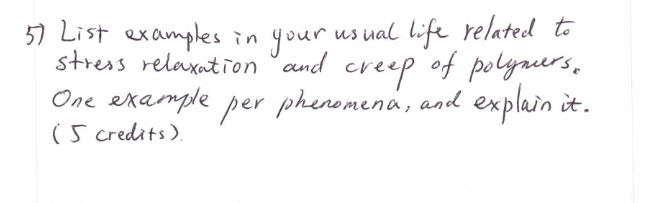 5) List examples in your usual life related to
stress relaxation and creep of polymers.
One example per phenomena, and explain it.
(5 credits).